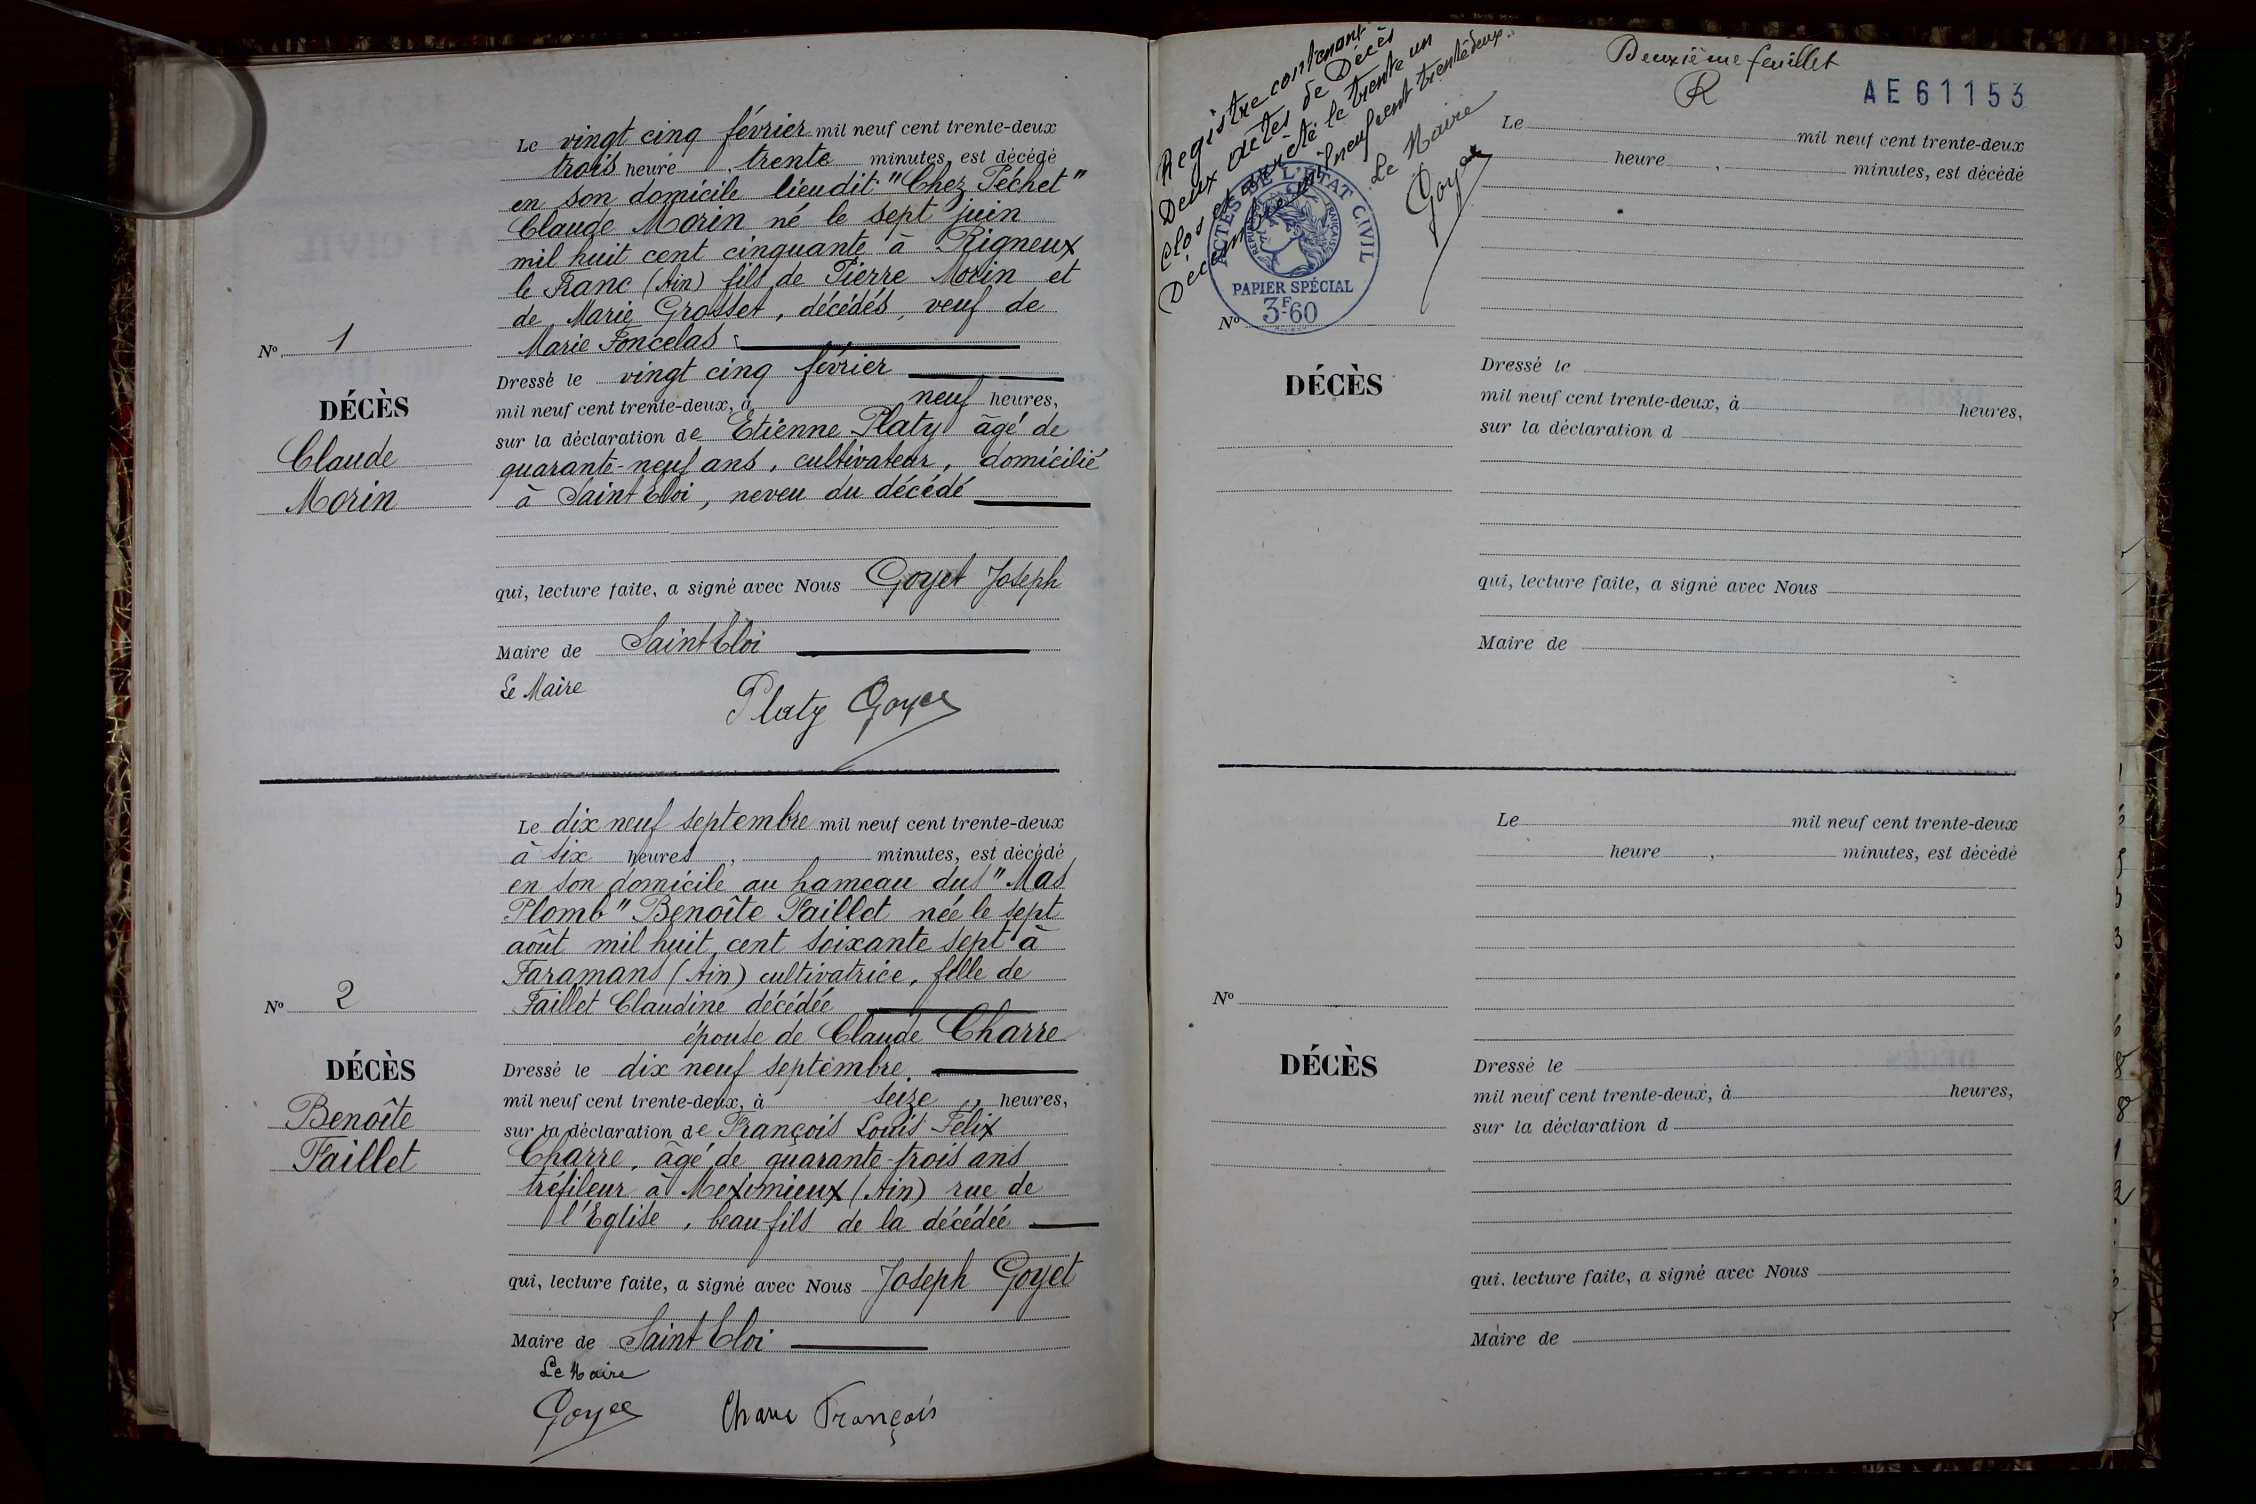 Le vingt cinq février mil neuf cent trente-deux
trois heure , trente minutes, est décédé
en son domicile lieudit "Chez Péchet"
Claude Morin né le sept juin
mil huit cent cinquante à Rigneux
le Franc (Ain) fils de Pierre Morin et
de Marie Grosset, décédés, veuf de
Marie Foncelas
No 1
DÉCÈS
Claude
Morin
Dressé le vingt cinq février
mil neuf cent trente-deux, à neuf heures,
sur la déclaration de Etienne Platy âgé de
quarante-neuf ans, cultivateur, domicilié
à Saint Eloi, neveu du décédé
qui, lecture faite, a signé avec Nous Goyet Joseph
Maire de Saint Eloi
Le Maire
Platy Goyet
Le dix neuf septembre mil neuf cent trente-deux
à six heures , minutes, est décédé
en son domicile au hameau du "Mas
Plomb" Benoîte Faillet née le sept
août mil huit cent soixante sept à
Faramans (Ain) cultivatrice, fille de
Faillet Claudine décédée
épouse de Claude Charre
No 2
DÉCÈS
Benoîte
Faillet
Dressé le dix neuf septembre
mil neuf cent trente-deux, à seize heures,
sur la déclaration de François Louis Félix
Charre, âgé de quarante-trois ans
tréfileur à Meximieux (Ain) rue de
l'Eglise, beau fils de la décédée
qui, lecture faite, a signé avec Nous Joseph Goyet
Maire de Saint Eloi
Le Maire
Goyet Charre François
Registre contenant
Deux actes de Décès
Clos et arrêté le trente un
Décembre mil neuf cent trente deux.
Le Maire
Goyet
ACTES DE L'ÉTAT CIVIL
RÉPUBLIQUE FRANÇAISE
PAPIER SPÉCIAL
3F60
Deuxième feuillet
R
AE61153
Le mil neuf cent trente-deux
heure , minutes, est décédé
No
DÉCÈS
Dressé le
mil neuf cent trente-deux, à heures,
sur la déclaration d
qui, lecture faite, a signé avec Nous
Maire de
Le mil neuf cent trente-deux
heure , minutes, est décédé
No
DÉCÈS
Dressé le
mil neuf cent trente-deux, à heures,
sur la déclaration d
qui, lecture faite, a signé avec Nous
Maire de